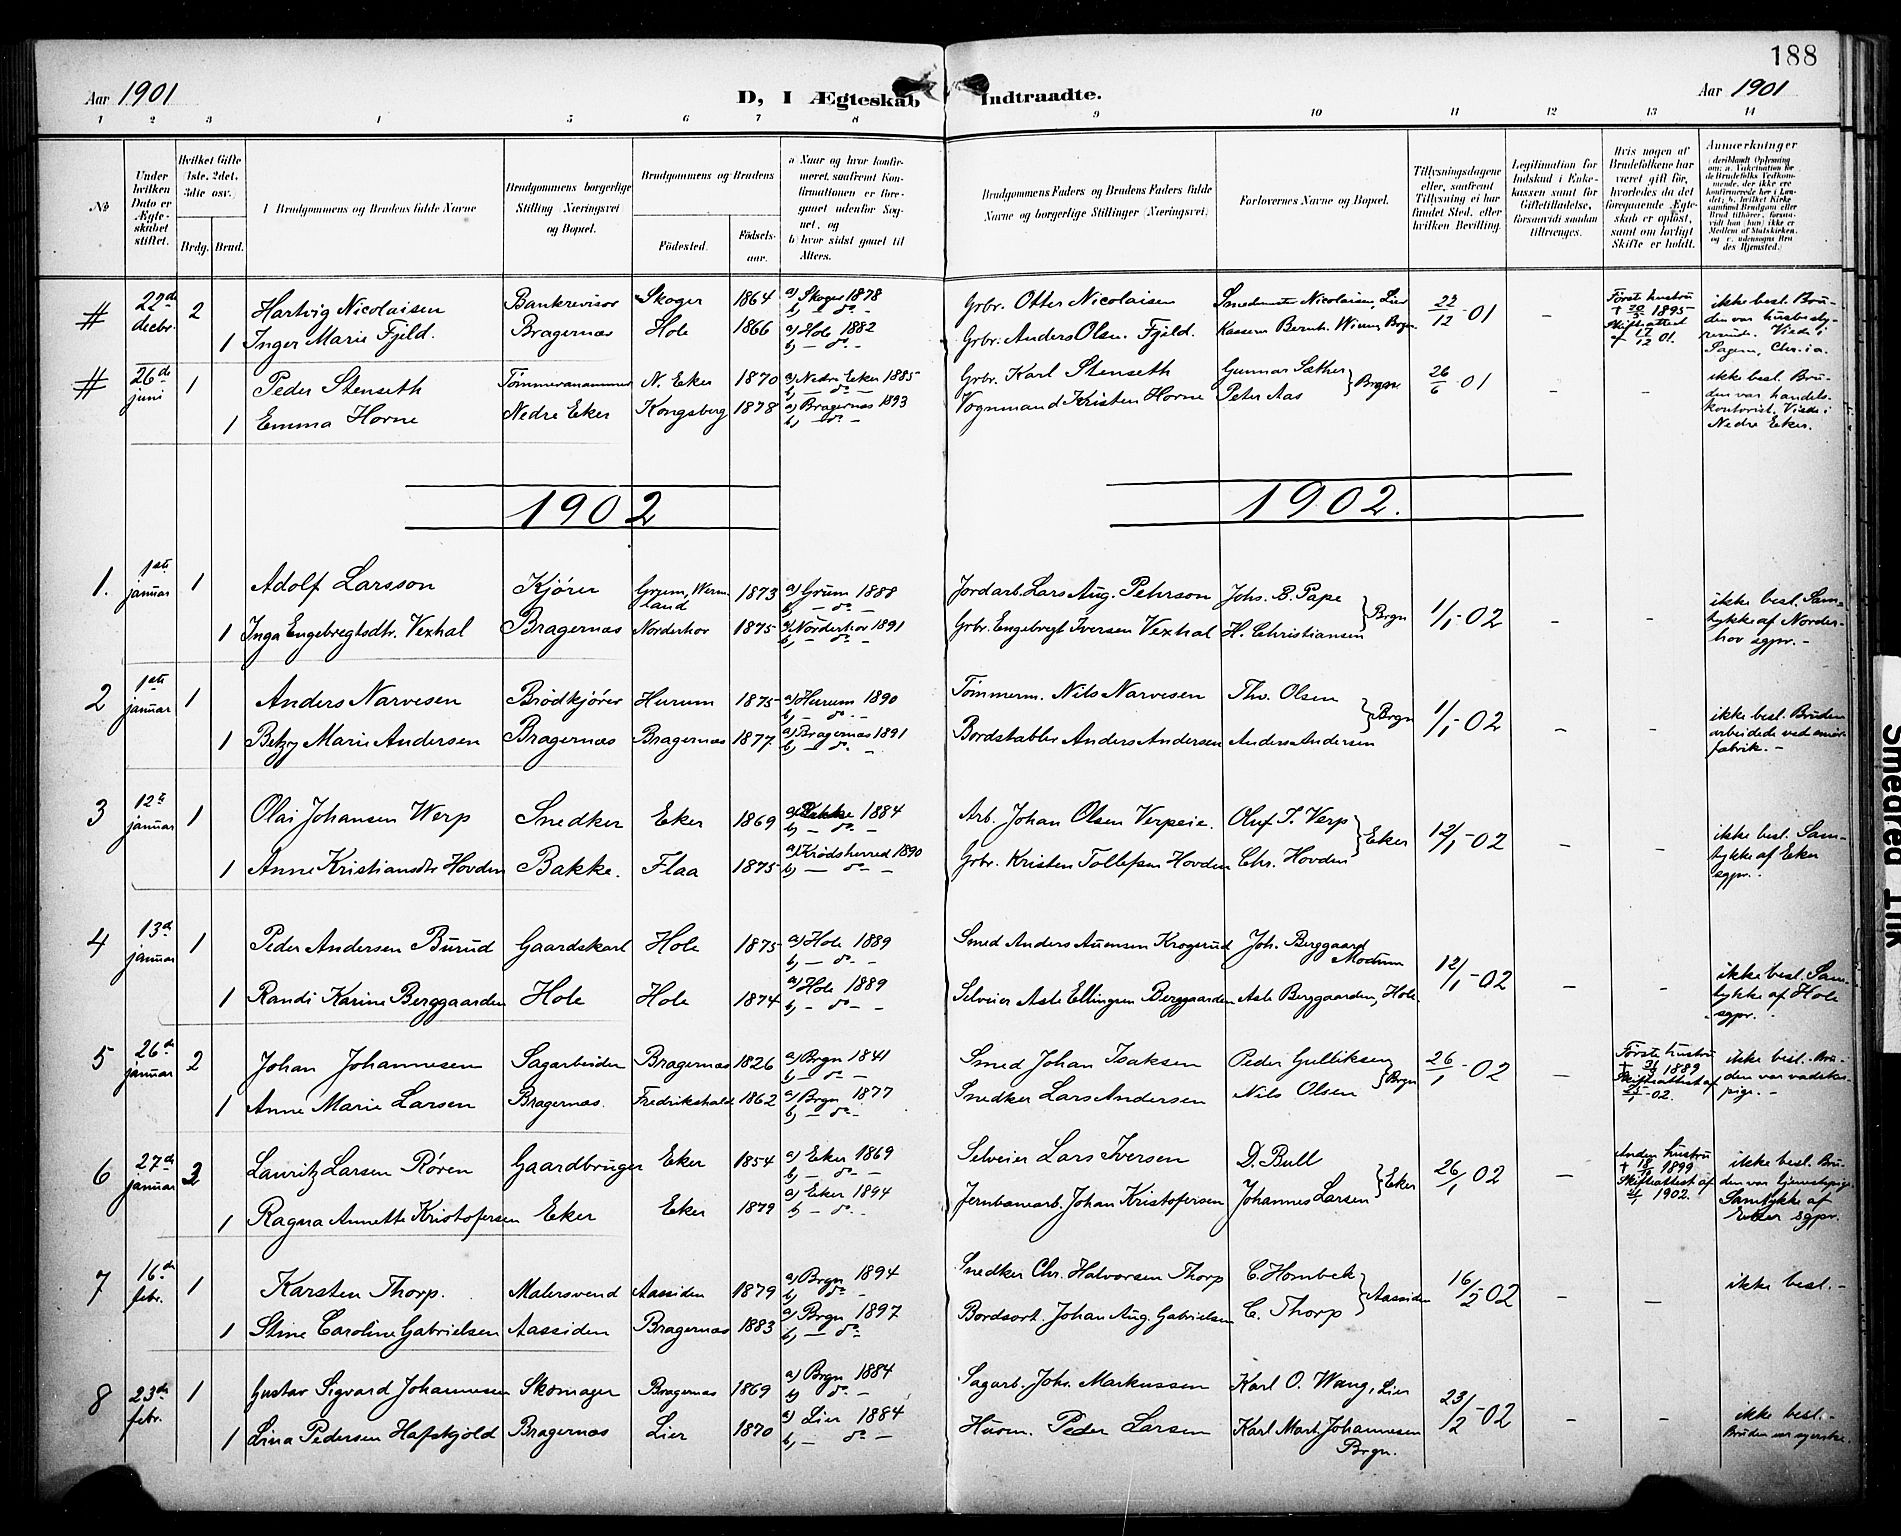 188
Aar 1901
D, I Ægteskab Indtraadte.
Aar 1901
1 2 3 4 5 6 7 8 9 10 11 12 13 14
No
Under hvilken Dato er Ægteskabet stiftet.
Hvilket Gifte (1ste, 2det, 3die osv.)
Brdg. Brud.
Brudgommens og Brudens fulde Navne
Brudgommens borgerlige Stilling (Næringsvei) og Bopæl.
Brudgommens og Brudens
Fødested.
Fødselsaar.
a Naar og hvor konfirmeret, saafremt Konfirmationen er foregaaet udenfor Sognet, og
b hvor sidst gaaet til Alters.
Brudgommens Faders og Brudens Faders fulde Navne og borgerlige Stillinger (Næringsvei)
Forlovernes Navne og Bopæl.
Tillysningsdagene eller, saafremt Tillysning ei har fundet Sted, efter hvilken Bevilling.
Legitimation for Indskud i Enkekassen samt for Giftetilladelse, forsaavidt saadan tiltrænges.
Hvis nogen af Brudefolkene har været gift før, hvorledes da det foregaaende Ægteskab er opløst, samt om lovligt Skifte er holdt.
Anmærkninger
# 22de decbr. 2 Hartvig Nicolaisen Bankrevisor Skoger 1864 a) Skoger 1878 b) - do - Grbr. Otter Nicolaisen Nicolaisen, Lier 22/12-01 - Første hustru 1895 Skifteattest af 17/12 01. ikke besl. Bruden var husbestyrerinde. Viede i Pagern, Chr.ia.
1 Inger Marie Fjeld. Bragernæs Hole 1866 a) Hole 1882 b) - do - Grbr. Anders Olsn. Fjeld. Kasserer Bernh. Brgn
# 26de juni 1 Peder Stenseth N. Eker 1870 a) Nedre Eker 1885 b) - do - Grbr. Karl Stenseth Gunnar Sæther Brgnæs 26/6-01 - - ikke besl. Bruden var handelskontorist. Viede i Nedre Eker.
1 Emma Horne Nedre Eker Kongsberg 1878 a) Bragernæs 1893 b) - do - Vognmand Kristen Horne Peter Aas
1902 1902.
1. 1ste januar 1 Adolf Larsson Kjører Grum, Wermland 1873 a) Grum 1888 b) - do - Jordarb. Lars Aug. Pehrson Johs. B. Pape Brgn 1/1-02 - - ikke besl. Samtykke af Norderhov sgpr. -
1 Inga Engebregtsdtr. Vexhal Bragernæs Norderhov 1875 a) Norderhov 1891 b) - do - Grbr. Engebregt Iversen Vexhal H. Christiansen
2 1ste januar 1 Anders Narvesen Brødkjører Hurum 1875 a) Hurum 1890 b) - do - Tømmerm. Nils Narvesen Thv. Olsen Brgn 1/1-02 - - ikke besl. Bruden arbeidede ved fabrik. -
1 Betzy Marie Andersen Bragernæs Bragernæs 1877 a) Bragernæs 1891 b) - do - Bordstabler Anders Andersen Anders Andersen
3 12te januar 1 Olai Johansen Werp Snedker Eker 1869 a) Bakke 1884 b) - do - Arb. Johan Olsen Verpeie. Oluf T. Verp Eker 12/1-02 - - ikke besl. Samtykke af Eker sgpr. -
1 Anne Kristiansdtr Hovden Bakke. Flaa 1875 a) Krødsherred 1890 b) - do - Grbr. Kristen Tollefsen Hovden Chr. Hovden
4 13de januar 1 Peder Andersen Burud Gaardskarl Hole 1875 a) Hole 1889 b) - do - Smed Anders Krogerud Joh. Berggaard Modum 12/1-02 - - ikke besl. Samtykke af Hole sgpr. -
1 Randi Karine Berggaarden Hole Hole 1874 a) Hole 1889 b) - do - Selveier Asle Ellingsen Berggaarden Asle Berggaarden, Hole.
5 26de januar 2 Johan Johannesen Sagarbeider Bragernæs 1826 a) Brgn 1841 b) - do - Smed Johan Isaksen Peder Gulliksen Brgn 26/1-02 - Første hustru 1889 Skifteattest af -02. ikke besl. Bruden var vadskepige. -
1 Anne Marie Larsen Bragernæs. Fredrikshald 1862 a) Brgn 1877 b) - do - Snedker Lars Andersen Nils Olsen
6 27de januar Lauritz Larsen Røren Gaardbruger Eker 1854 a) Eker 1869 b) - do - Selveier Lars Iversen D. Bull Eker 26/1 02 - Anden hustru 1899 Skifteattest af 1902. ikke besl. Bruden var tjenestepige. Samtykke af Eker sgpr.
1 Ragna Annette Kristofersen Eker Eker 1879 a) Eker 1894 b) - do - Jernbanearb. Johan Kristofersen Johannes Larsen
7 16de febr. 1 Karsten Thorp. Malersvend Aassiden 1879 a) Brgn 1894 b) do - Snedker Chr. Halvorsen Thorp C. Hornbek Aassiden 16/2 02 - - ikke besl. -
1 Stine Caroline Gabrielsen Aassiden Bragernæs 1883 a) Brgn 1897 b) - do - Bordsort. Johan Aug. Gabrielsen C. Thorp
8 23de febr. 1 Gustav Sigvard Johannesen Skomager Bragernæs 1869 a) Brgn 1884 b) do - Sagarb. Johs. Markussen Karl O. Wang, Lier 23/2-02 - - ikke besl. - Bruden var syerske.
1 Lina Pedersen Hafskjold Bragernæs Lier 1870 a) Lier 1884 b) - do - Husm. Peder Larsen Karl Mart. Johannesen Brgn.
Smedrud Tilik